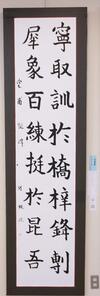 寧取訓於橋梓鋒剸
犀象百練挺於昆吾